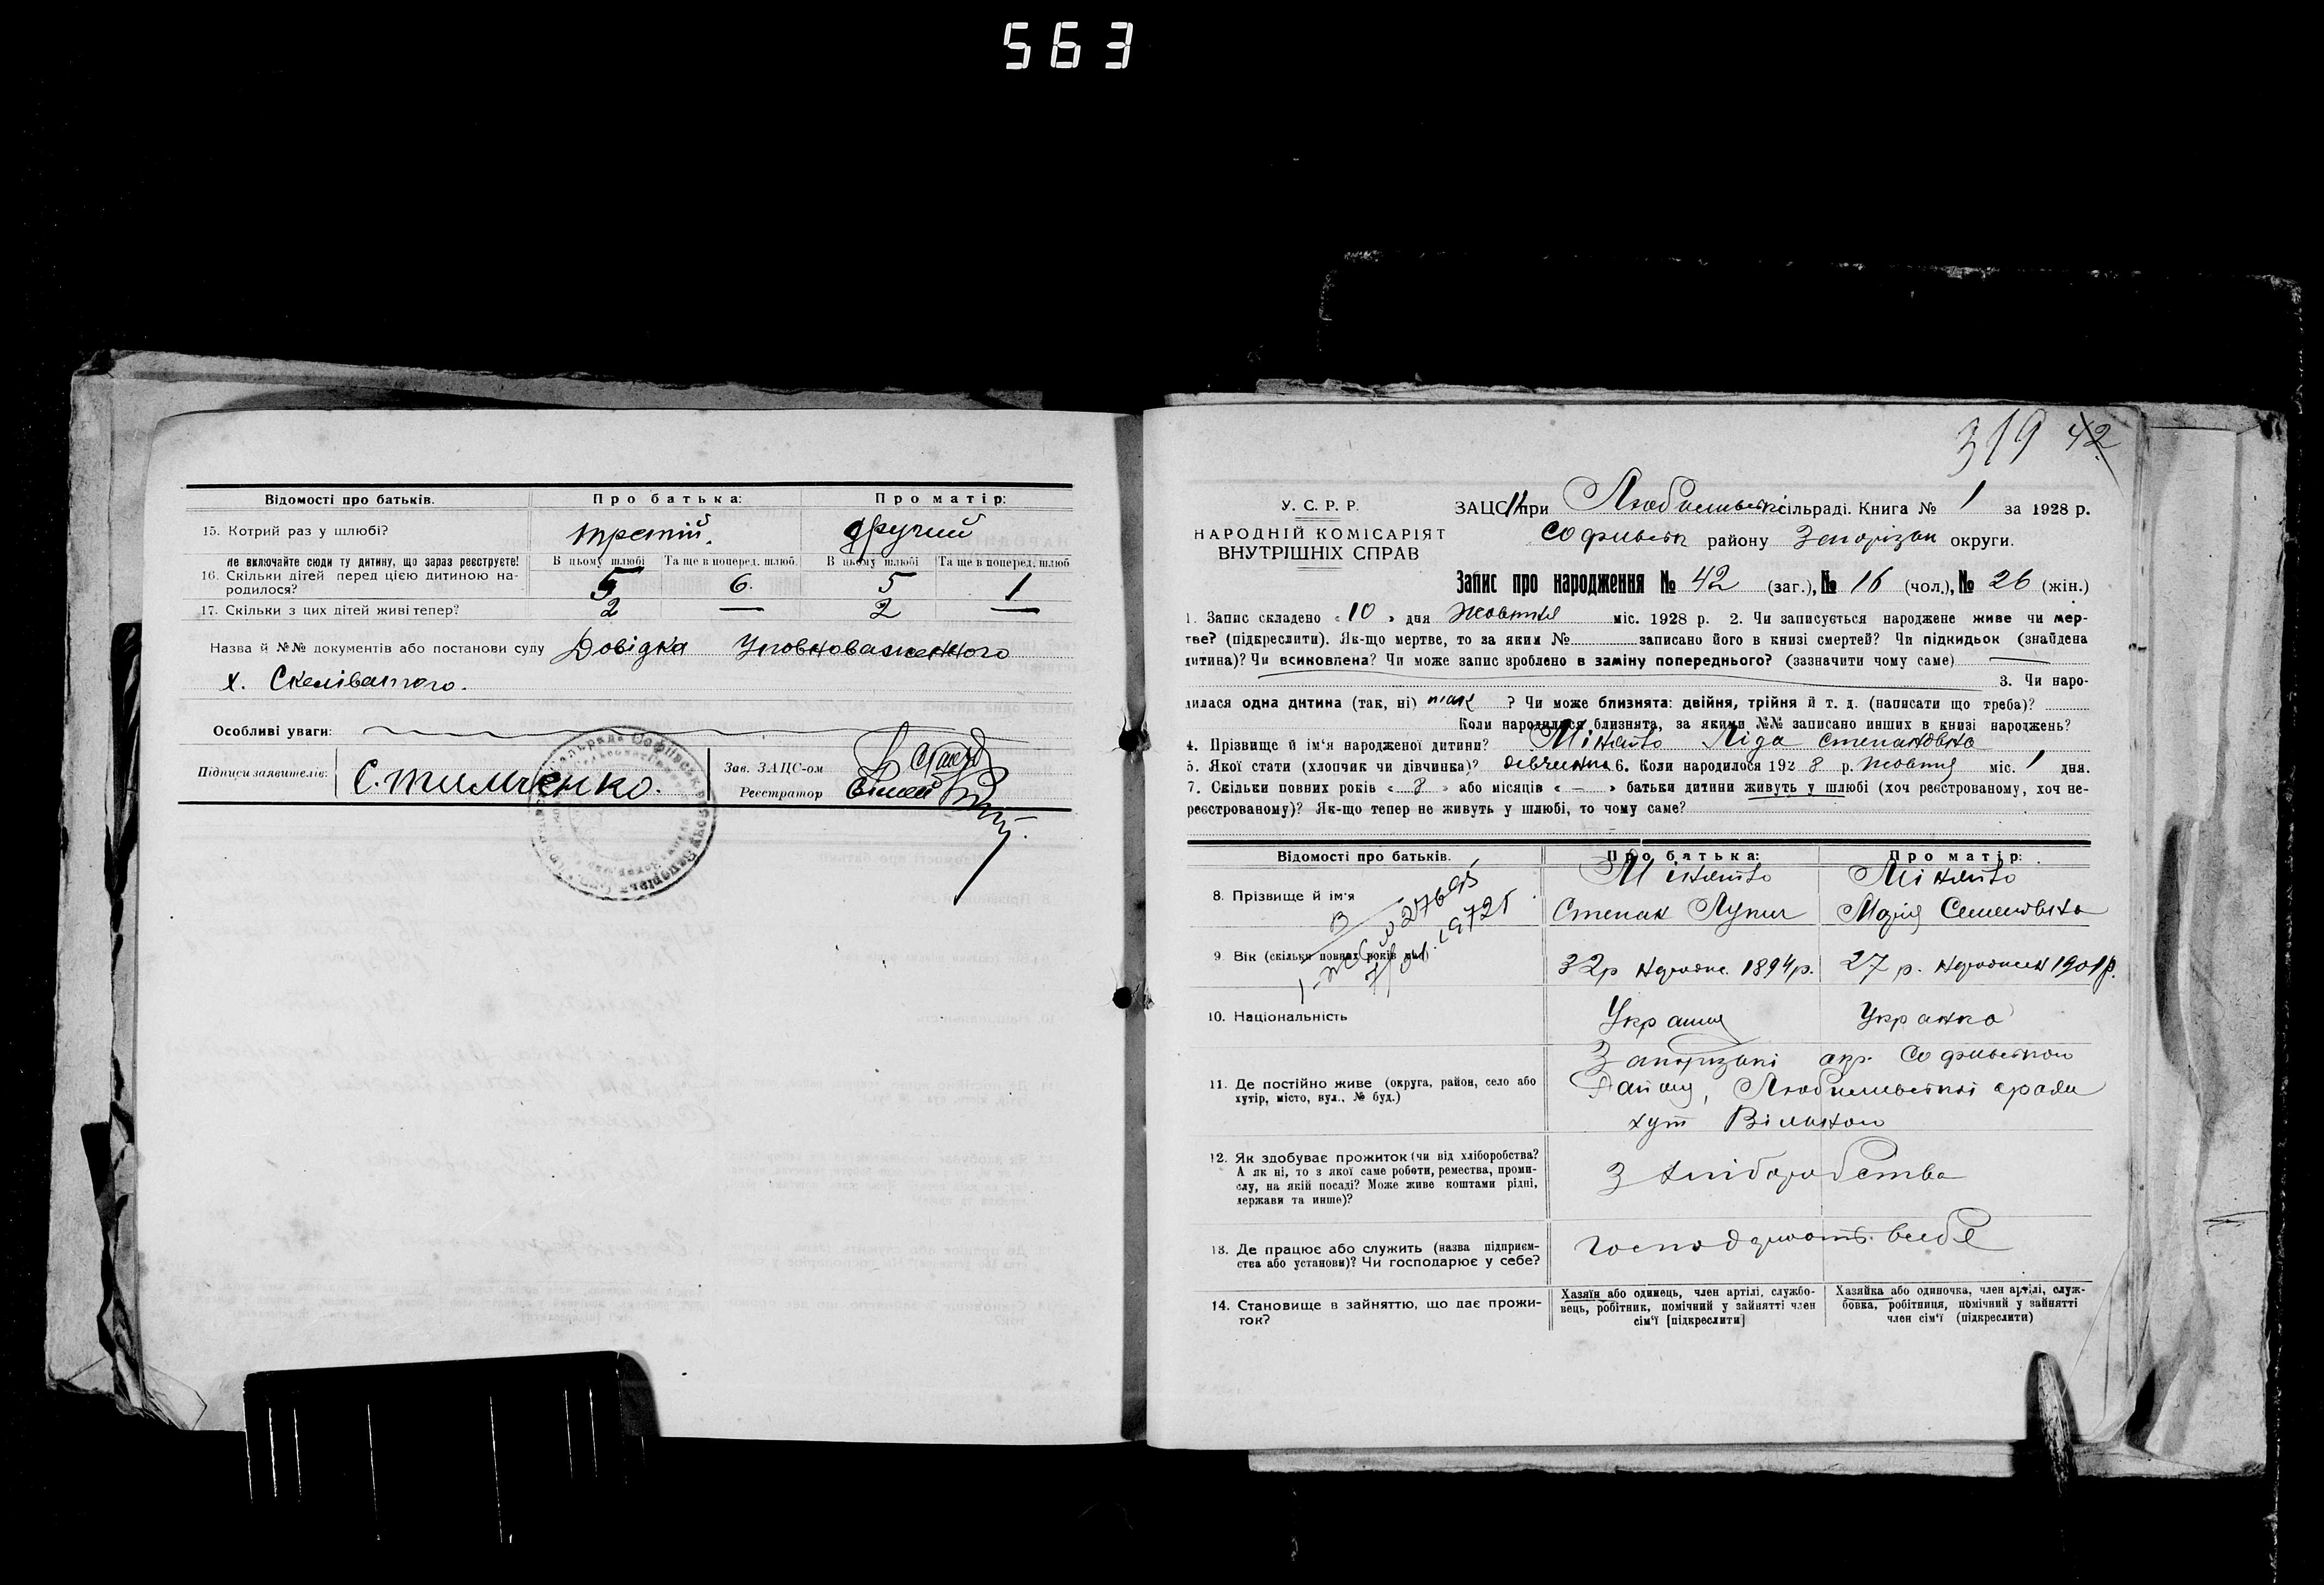 563
Відомості про батьків. Про батька: Про матір:
15. Котрий раз у шлюбі? третій. другий
Не включайте сюди ту дитину, що зараз реєструєте! В цьому шлюбі Та ще в поперед. шлюб. В цьому шлюбі Та ще в поперед. шлюб
16. Скільки дітей перед цією дитиною на-
родилося? 5 6. 5 1
17. Скільки з цих дітей живі тепер? 2 — 2 —
Назва й №№ документів або постанови суду Довідка Уповноваженного
х. Скеліватого.
Особливі уваги:
Підписи заявителів: С. Тимченко. Зав. ЗАЦС-ом
Реєстратор
319 42
У. С. Р. Р.
НАРОДНІЙ КОМІСАРІЯТ
ВНУТРІШНІХ СПРАВ
ЗАЦС при сільраді. Книга № 1 за 1928 р.
Софиевськ району Запорізьк округи.
Запис про народження № 42 (заг.), № 16 (чол.), № 26 (жін.)
1. Запис складено « 10 » дня Жовтня міс. 1928 р. 2. Чи записується народжене живе чи мер-
тве? (підкреслити). Як-що мертве, то за яким № записано його в книзі смертей? Чи підкидьок (знайдена
дитина)? Чи всиновлена? Чи може запис зроблено в заміну попереднього? (зазначити чому саме) —
3. Чи наро-
дилася одна дитина (так, ні) так ? Чи може близнята: двійня, трійня й т. д. (написати що треба)?
Коли народилися близнята, за якими №№ записано инших в книзі народжень?
4. Прізвище й ім'я народженої дитини? Ліда Степановна
5. Якої стати (хлопчик чи дівчинка)? девченка 6. Коли народилося 192 8 р. жовтня міс. 1 дня.
7. Скільки повних років « 8 » або місяців « — » батьки дитини живуть у шлюбі (хоч реєстрованому, хоч не-
реєстрованому)? Як-що тепер не живуть у шлюбі, то чому саме?
Відомості про батьків. Про батька: Про матір:
8. Прізвище й ім'я
Степан Марія Семеновна
9. Вік (скільки повних років має) 32 р 1894 р. 27 р. 1901 р.
10. Національність Українка
11. Де постійно живе (округа, район, село або
хутір, місто, вул., № буд.)
Запорізької окр. Софиевського
Району,
хут Вільного
12. Як здобуває прожиток (чи від хліборобства?
А як ні, то з якої саме роботи, ремества, проми-
слу, на якій посаді? Може живе коштами рідні,
держави та инше)?
З хліборобства
13. Де працює або служить (назва підприєм-
ства або установи)? Чи господарює у себе?
14. Становище в зайняттю, що дає прожи-
ток?
Хазяїн або одинець, член артілі, службо-
вець, робітник, помічний у зайнятті член
сім'ї [підкреслити]
Хазяйка або одиночка, член артілі, служ-
бовка, робітниця, помічний у зайнятті
член сім'ї (підкреслити)